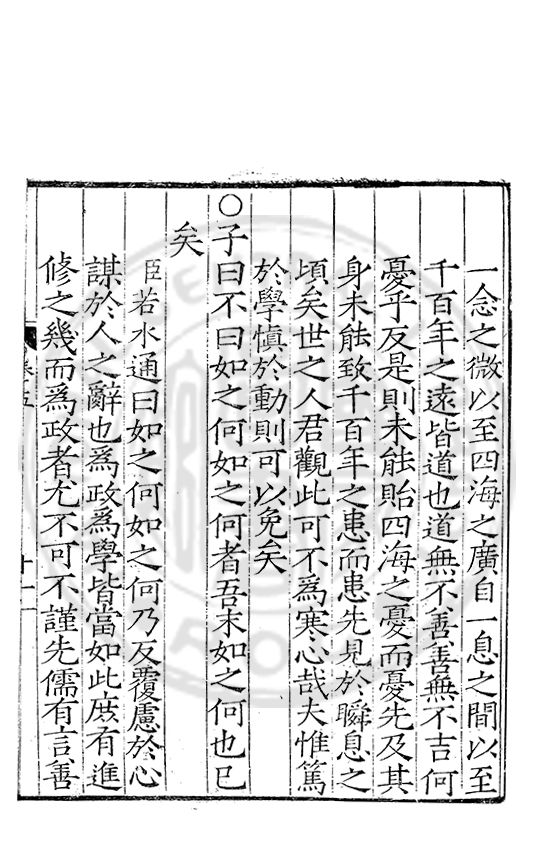 一念之微以至四海之廣自一息之間以至
千百年之遠皆道也道無不善善無不吉何
憂乎反是則未能貽四海之憂而憂先及其
身未能致千百年之患而患先見於瞬息之
頃矣世之人君觀此可不為寒心哉夫惟篤
於學慎於動則可以免矣
○子曰不曰如之何如之何者吾末如之何也已
矣
臣若水通曰如之何如之何乃反覆慮於心
謀於人之辭也為政為學皆當如此庶有進
脩之幾而為政者尤不可不謹先儒有言善
卷十五
十一